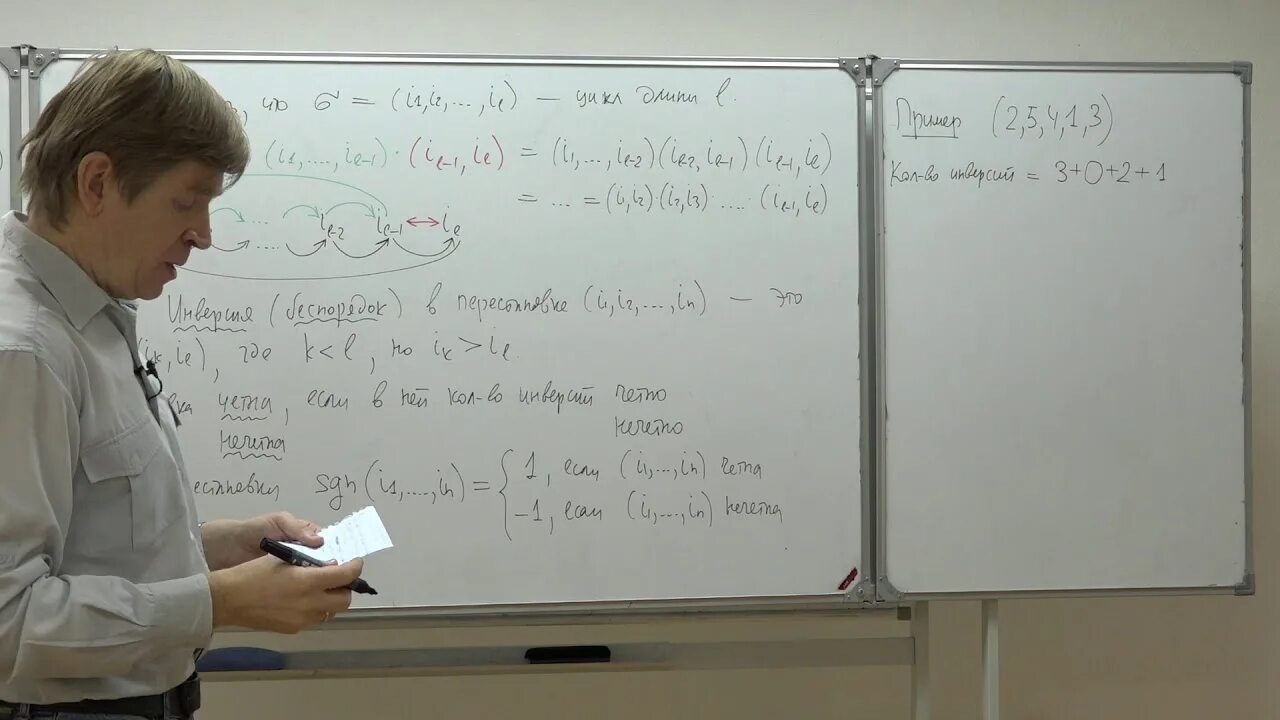 , что σ = (i₁, i₂, ..., iₑ) — цикл длины ℓ.
(i₁, ...., iₑ₋₁) · (iₑ₋₁, iₑ) = (i₁, ..., iₑ₋₂)(iₑ₋₂, iₑ₋₁)(iₑ₋₁, iₑ)
= ... = (i₁, i₂)·(i₂, i₃) · .... · (iₑ₋₁, iₑ)
.... iₑ₋₂ iₑ₋₁ ↔ iₑ
....
Инверсия (беспорядок) в перестановке (i₁, i₂, ..., iₙ) — это
(iₖ, iₑ), где k < ℓ, но iₖ > iₑ.
чётна, если в ней кол-во инверсий чётно
нечётна нечётно
sgn(i₁, ...., iₙ) = { 1, если (i₁, ..., iₙ) чётна
-1, если (i₁, ..., iₙ) нечётна
Пример (2, 5, 4, 1, 3)
Кол-во инверсий = 3+0+2+1